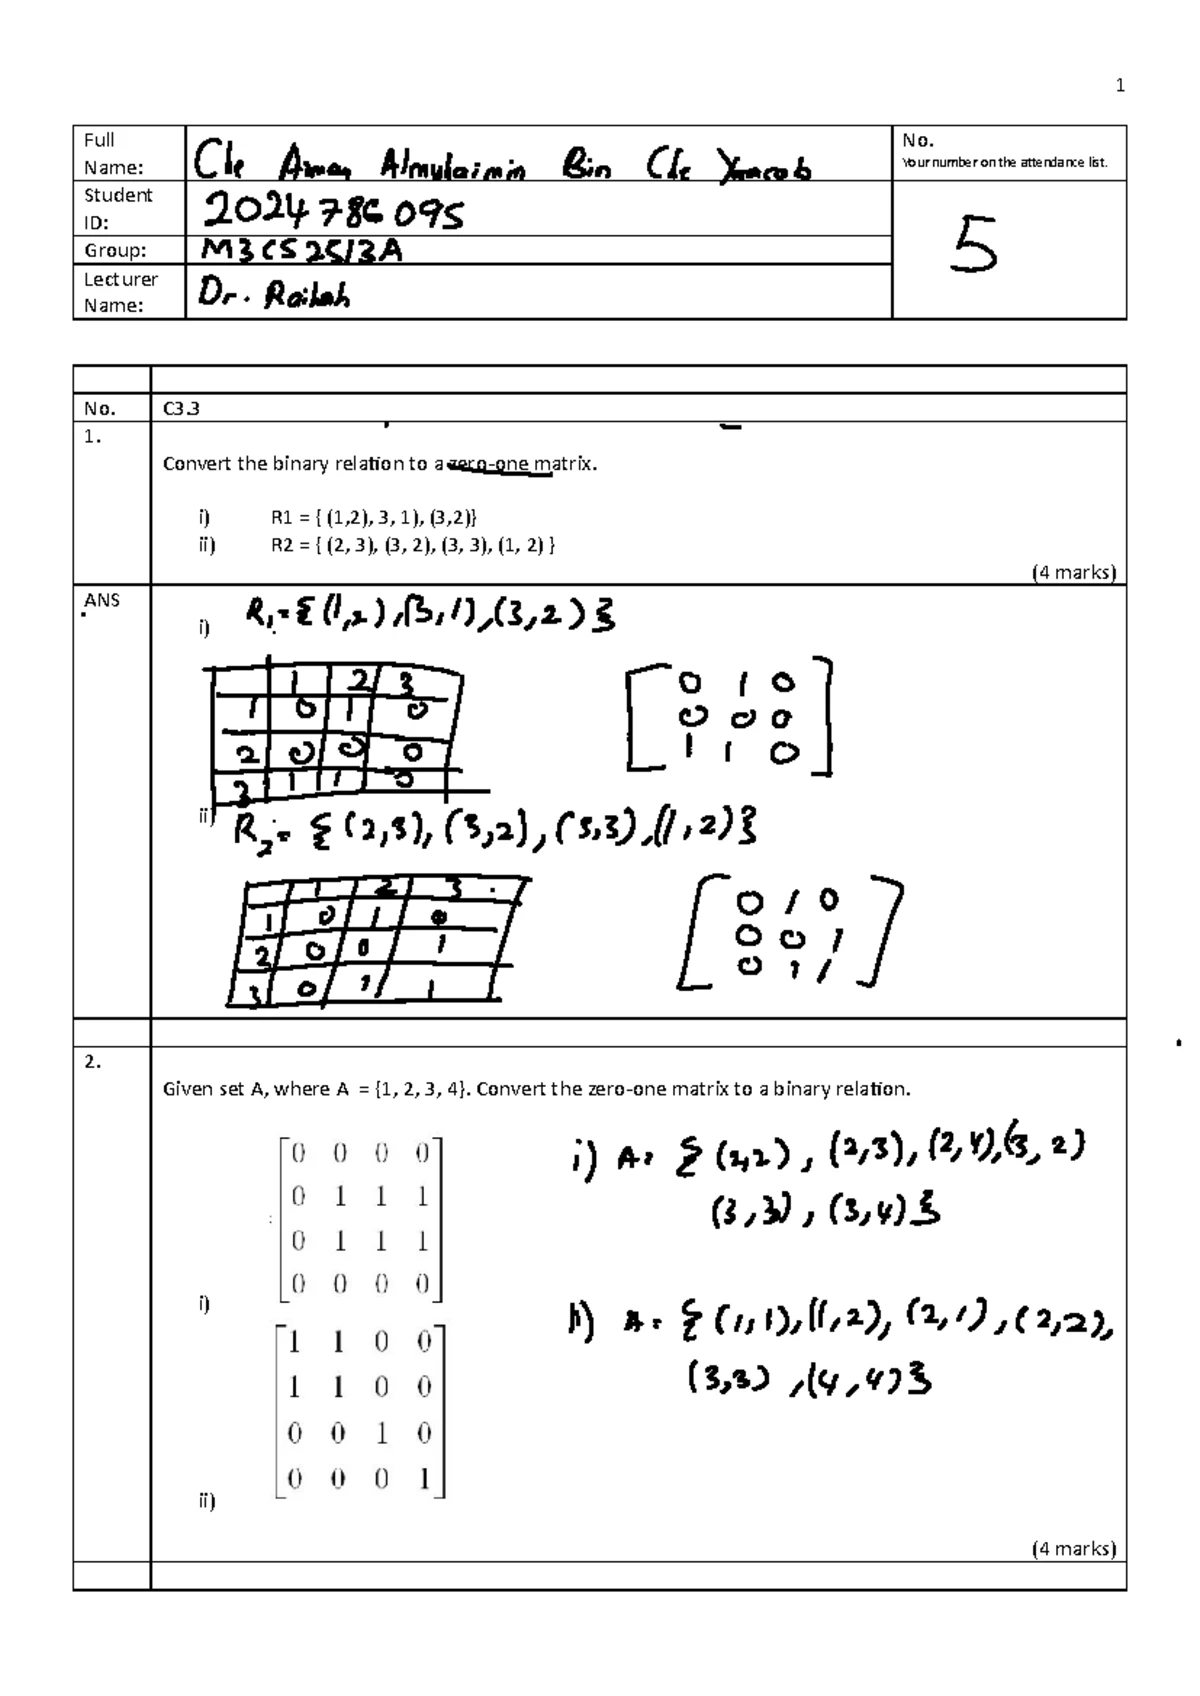 1
Full Name: Che Aiman Almulaimin Bin Che Yaacob
No.
Your number on the attendance list.
5
Student ID: 2024786095
Group: M3CS2513A
Lecturer Name: Dr. Railah
No. C3.3
1.
Convert the binary relation to a zero-one matrix.
i) R1 = { (1,2), 3, 1), (3,2)}
ii) R2 = { (2, 3), (3, 2), (3, 3), (1, 2) }
(4 marks)
ANS
i) R1 = { (1,2), (3,1), (3,2) }
1 2 3
1 0 1 0
2 0 0 0
3 1 1 0
0 1 0
0 0 0
1 1 0
ii) R2 = { (2,3), (3,2), (3,3), (1,2) }
1 2 3
1 0 1 0
2 0 0 1
3 0 1 1
0 1 0
0 0 1
0 1 1
2.
Given set A, where A = {1, 2, 3, 4}. Convert the zero-one matrix to a binary relation.
0 0 0 0
0 1 1 1
0 1 1 1
0 0 0 0
i)
i) A = { (2,2), (2,3), (2,4), (3, 2)
(3,3), (3,4) }
1 1 0 0
1 1 0 0
0 0 1 0
0 0 0 1
ii)
ii) A = { (1,1), (1,2), (2,1), (2,2),
(3,3), (4,4) }
(4 marks)